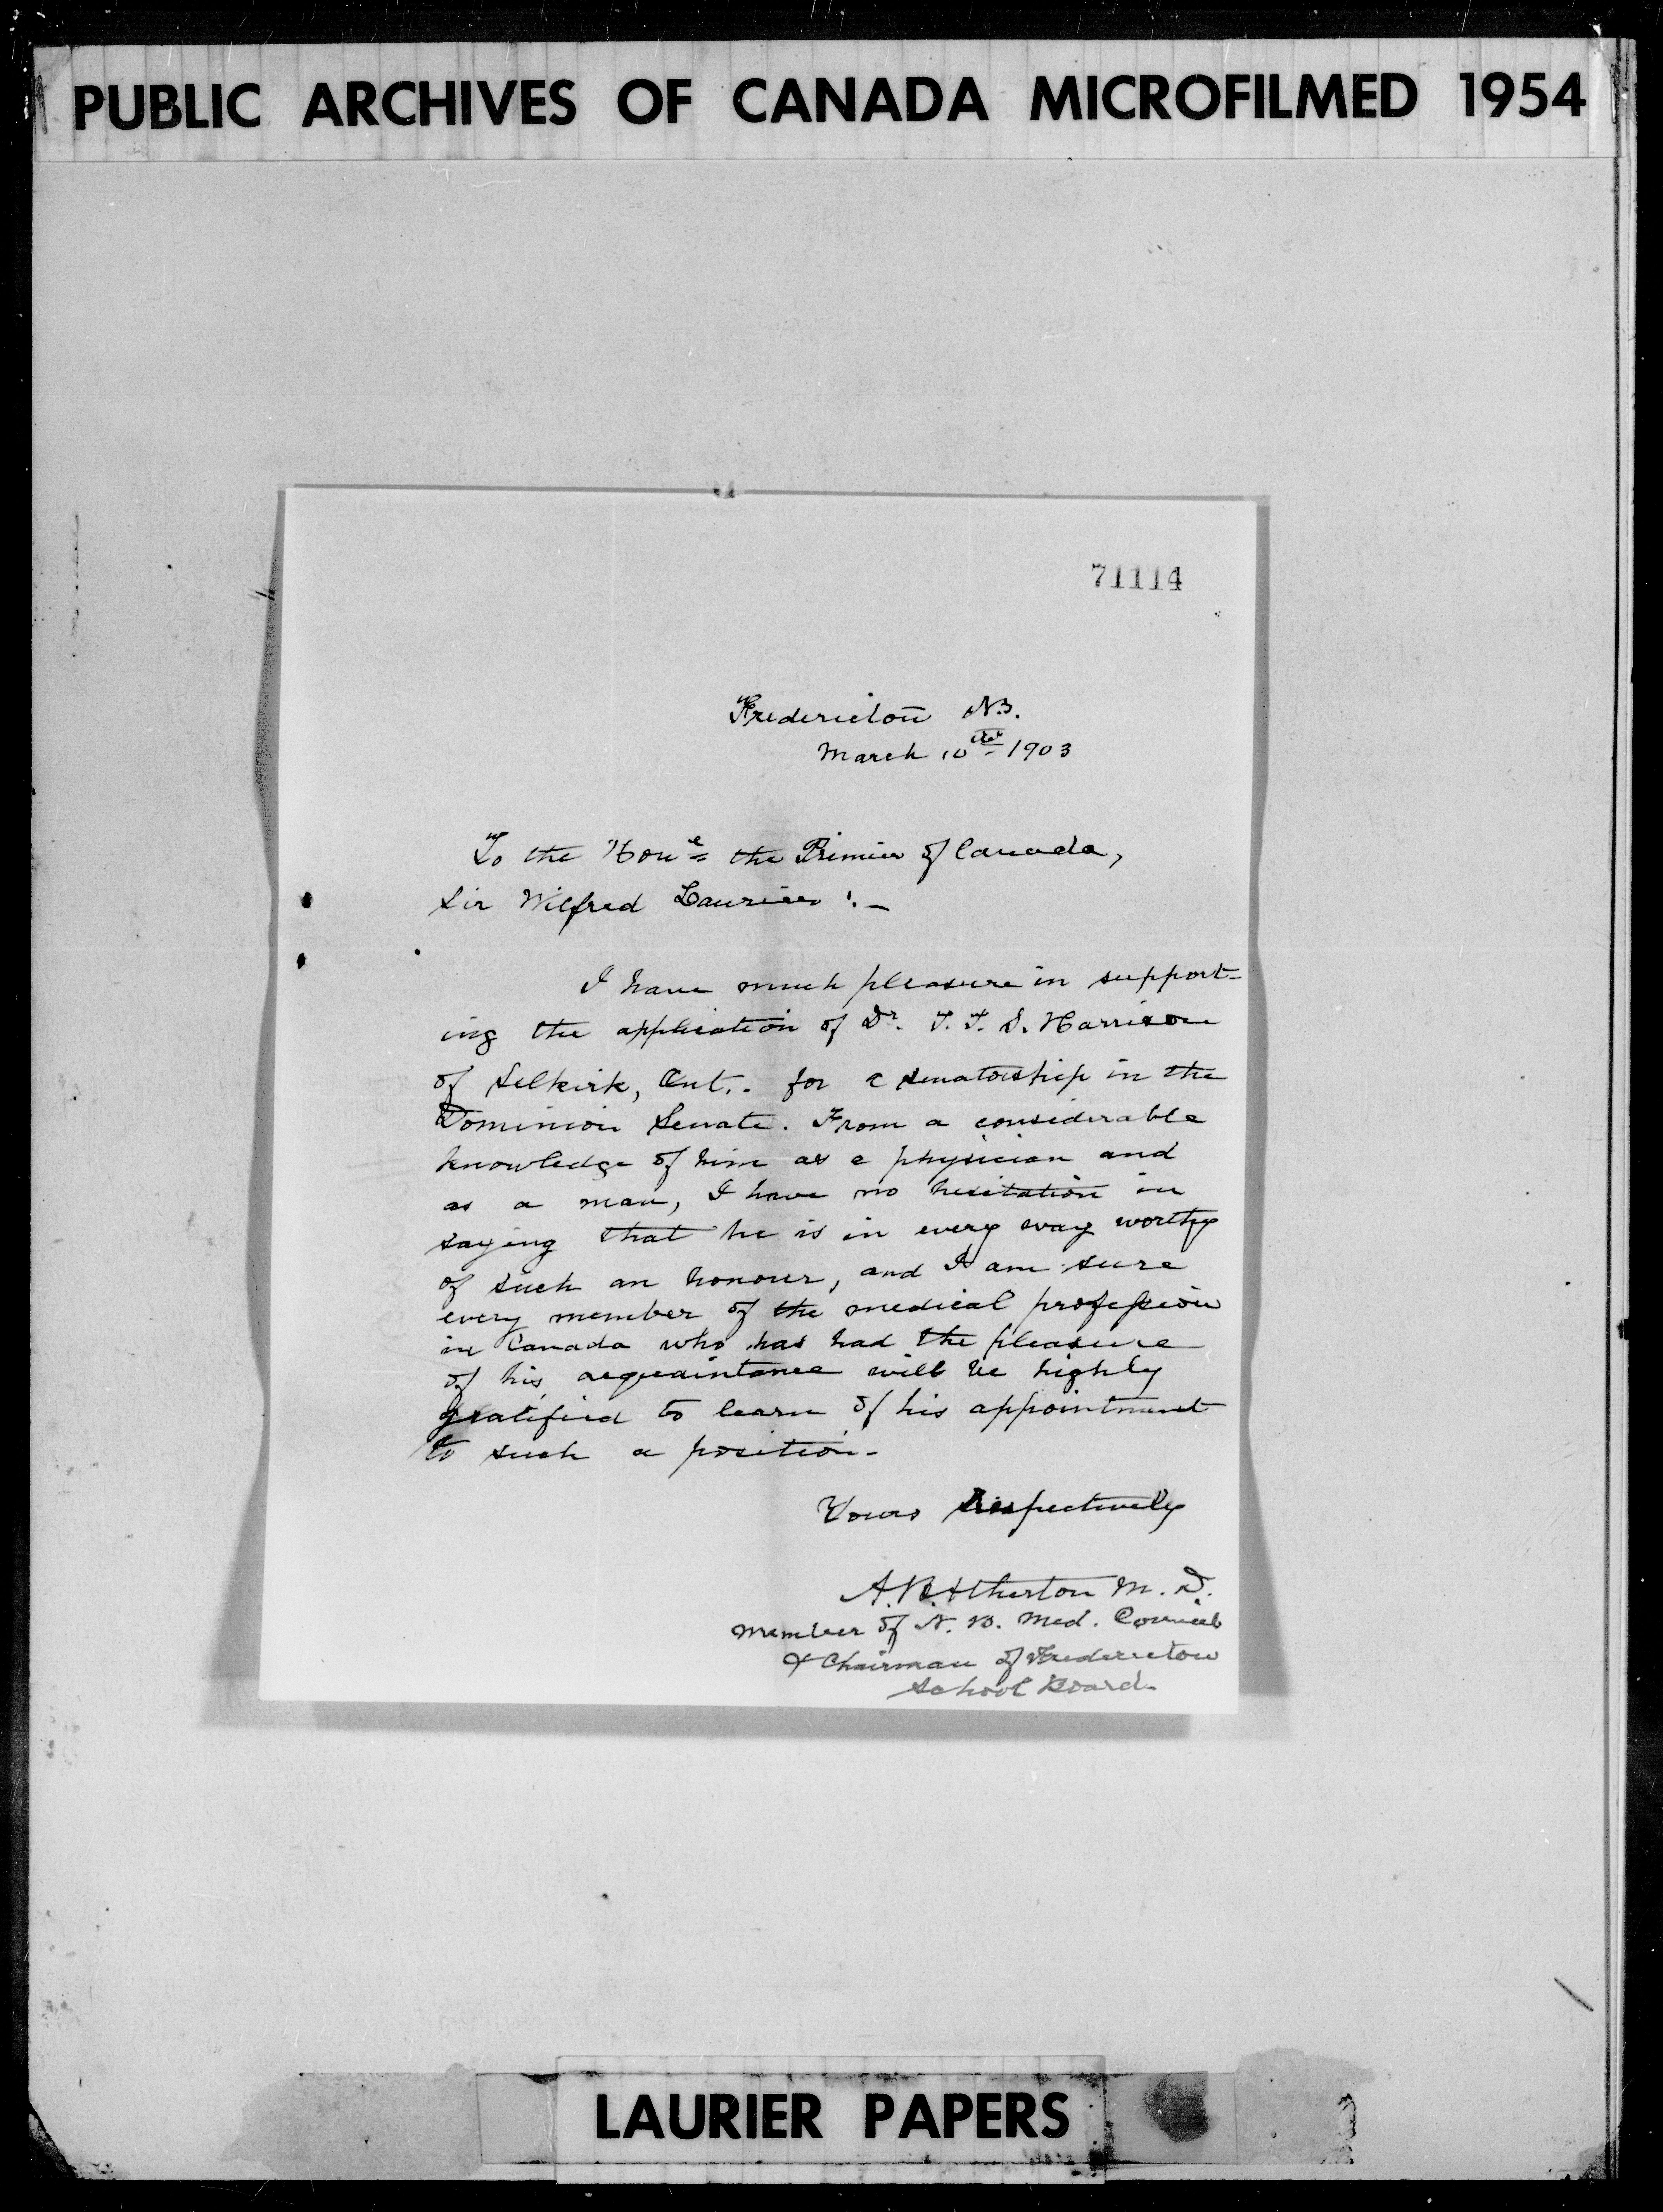 PUBLIC ARCHIVES OF CANADA MICROFILMED 1954
71114
Fredericton N.B.
March 10th 1903
To the Hone the Primier of Canada,
Sir Wilfred Laurier :-
I have much pleasure in support-
ing the application of Dr. T. T. S. Harrison
of Selkirk, Ont.. for a senatorship in the
Dominion Senate. From a considerable
knowledge of him as a physician and
as a man, I have no hesitation in
saying that he is in every way worthy
of such an honour, and I am sure
every member of the medical profession
in Canada who has had the pleasure
of his acquaintance will be highly
gratified to learn of his appointment
to such a position.
Yours respectively
A. B. Atherton M. D.
Member of N. B. Med. Council
& Chairman of Fredericton
School Board.
LAURIER PAPERS